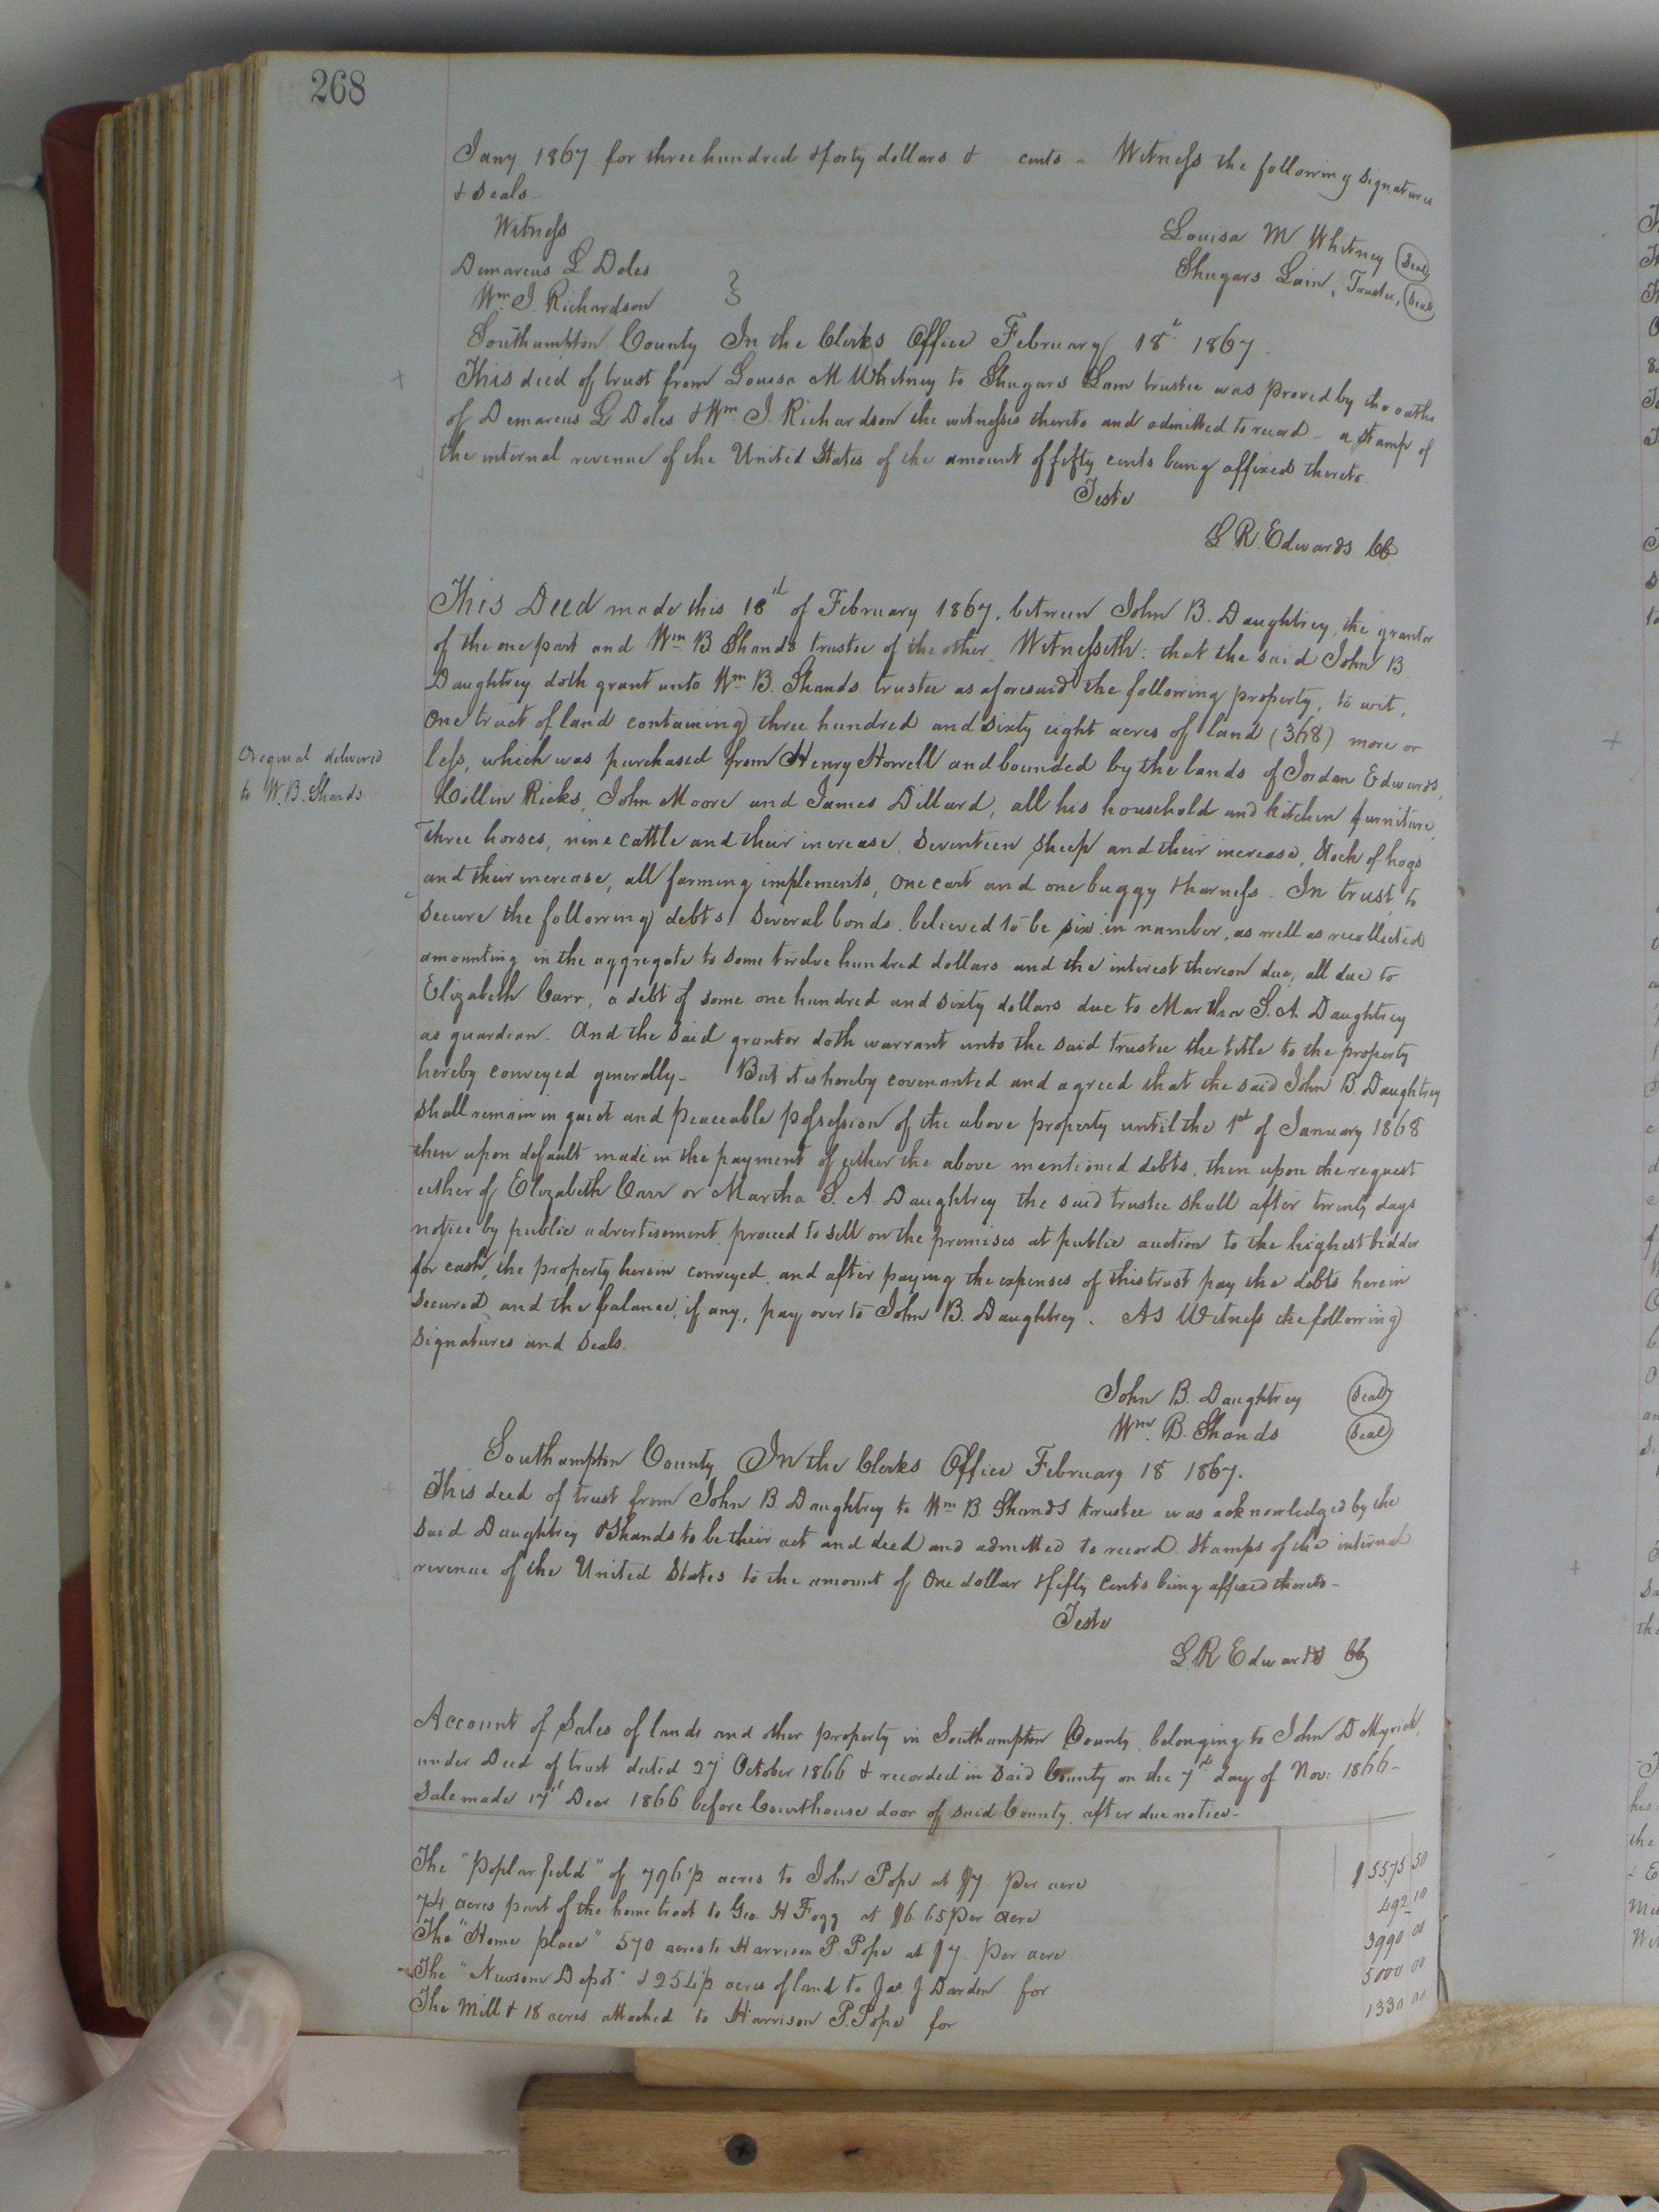 268
Jany 1867 for three hundred & forty dollars & cents - Witness the following signatures
& seals -
Witness
Louisa M Whitney (Seal)
Demarcus L Doles
Shugars Lain, Trustee, (Seal)
Wm. J. Richardson
Southampton County In the Clerks Office February 18th 1867.
This deed of trust from Louisa M Whitney to Shugars Lain trustee was proved by the oaths
of Demarcus L Doles & Wm. J. Richardson the witnesses thereto and admitted to record - a stamp of
the internal revenue of the United States of the amount of fifty cents being affixed thereto.
Teste
L R. Edwards CC
This Deed made this 18th of February 1867, between John B. Daughtrey, the grantor
of the one part and Wm B. Shands trustee of the other - Witnesseth: that the said John B
Daughtrey doth grant unto Wm B. Shands trustee as aforesaid the following property, to wit,
One tract of land containing three hundred and sixty eight acres of land (368) more or
less, which was purchased from Henry Howell and bounded by the lands of Jordan Edwards,
Original delivered
to W. B. Shands
Collin Ricks, John Moore and James Dillard, all his household and kitchen furniture,
three horses, nine cattle and their increase, seventeen sheep and their increase, stock of hogs
and their increase, all farming implements, one cart and one buggy & harness - In trust, to
secure the following debts, several bonds, believed to be six in number, as well as recollected
amounting in the aggregate to some twelve hundred dollars and the interest thereon due, all due to
Elizabeth Carr, a debt of some one hundred and sixty dollars due to Martha S. A. Daughtrey
as guardian. And the said grantor doth warrant unto the said trustee the title to the property
hereby conveyed generally - But it is hereby covenanted and agreed that the said John B. Daughtrey
shall remain in quiet and peaceable possession of the above property until the 1st of January 1868
then upon default made in the payment of either the above mentioned debts, then upon the request
either of Elizabeth Carr or Martha S. A. Daughtrey the said trustee shall after twenty days
notice by public advertisement, proceed to sell on the premises at public auction to the highest bidder
for cash, the property herein conveyed, and after paying the expenses of this trust pay the debts herein
secured, and the balance, if any, pay over to John B. Daughtrey. As Witness the following
signatures and seals.
John B. Daughtrey (Seal)
Wm. B. Shands (Seal)
Southampton County In the Clerks Office February 18 1867.
This deed of trust from John B. Daughtrey to Wm B. Shands trustee was acknowledged by the
said Daughtrey & Shands to be their act and deed and admitted to record. Stamps of the internal
revenue of the United States to the amount of One dollar & fifty cents being affixed thereto -
Teste
L R Edwards CC
Account of Sales of lands and other property in Southampton County belonging to John D Myrick,
under Deed of trust dated 27 October 1866 & recorded in said County on the 7th day of Nov: 1866 -
Sale made 17th Decr 1866 before Courthouse door of said County after due notice -
The "Poplar field" of 796 1/2 acres to John Pope at $7 per acre $5575 50
74 acres part of the home tract to Geo. H Fogg at $6.65 per acre 492 10
The "Home place" 570 acres to Harrison P Pope at $7. per acre 3990 00
The "Newsom Depot" & 254 1/2 acres of land to Jas. J Darden for 5000 00
The Mill & 18 acres attached to Harrison P. Pope for 1330 00